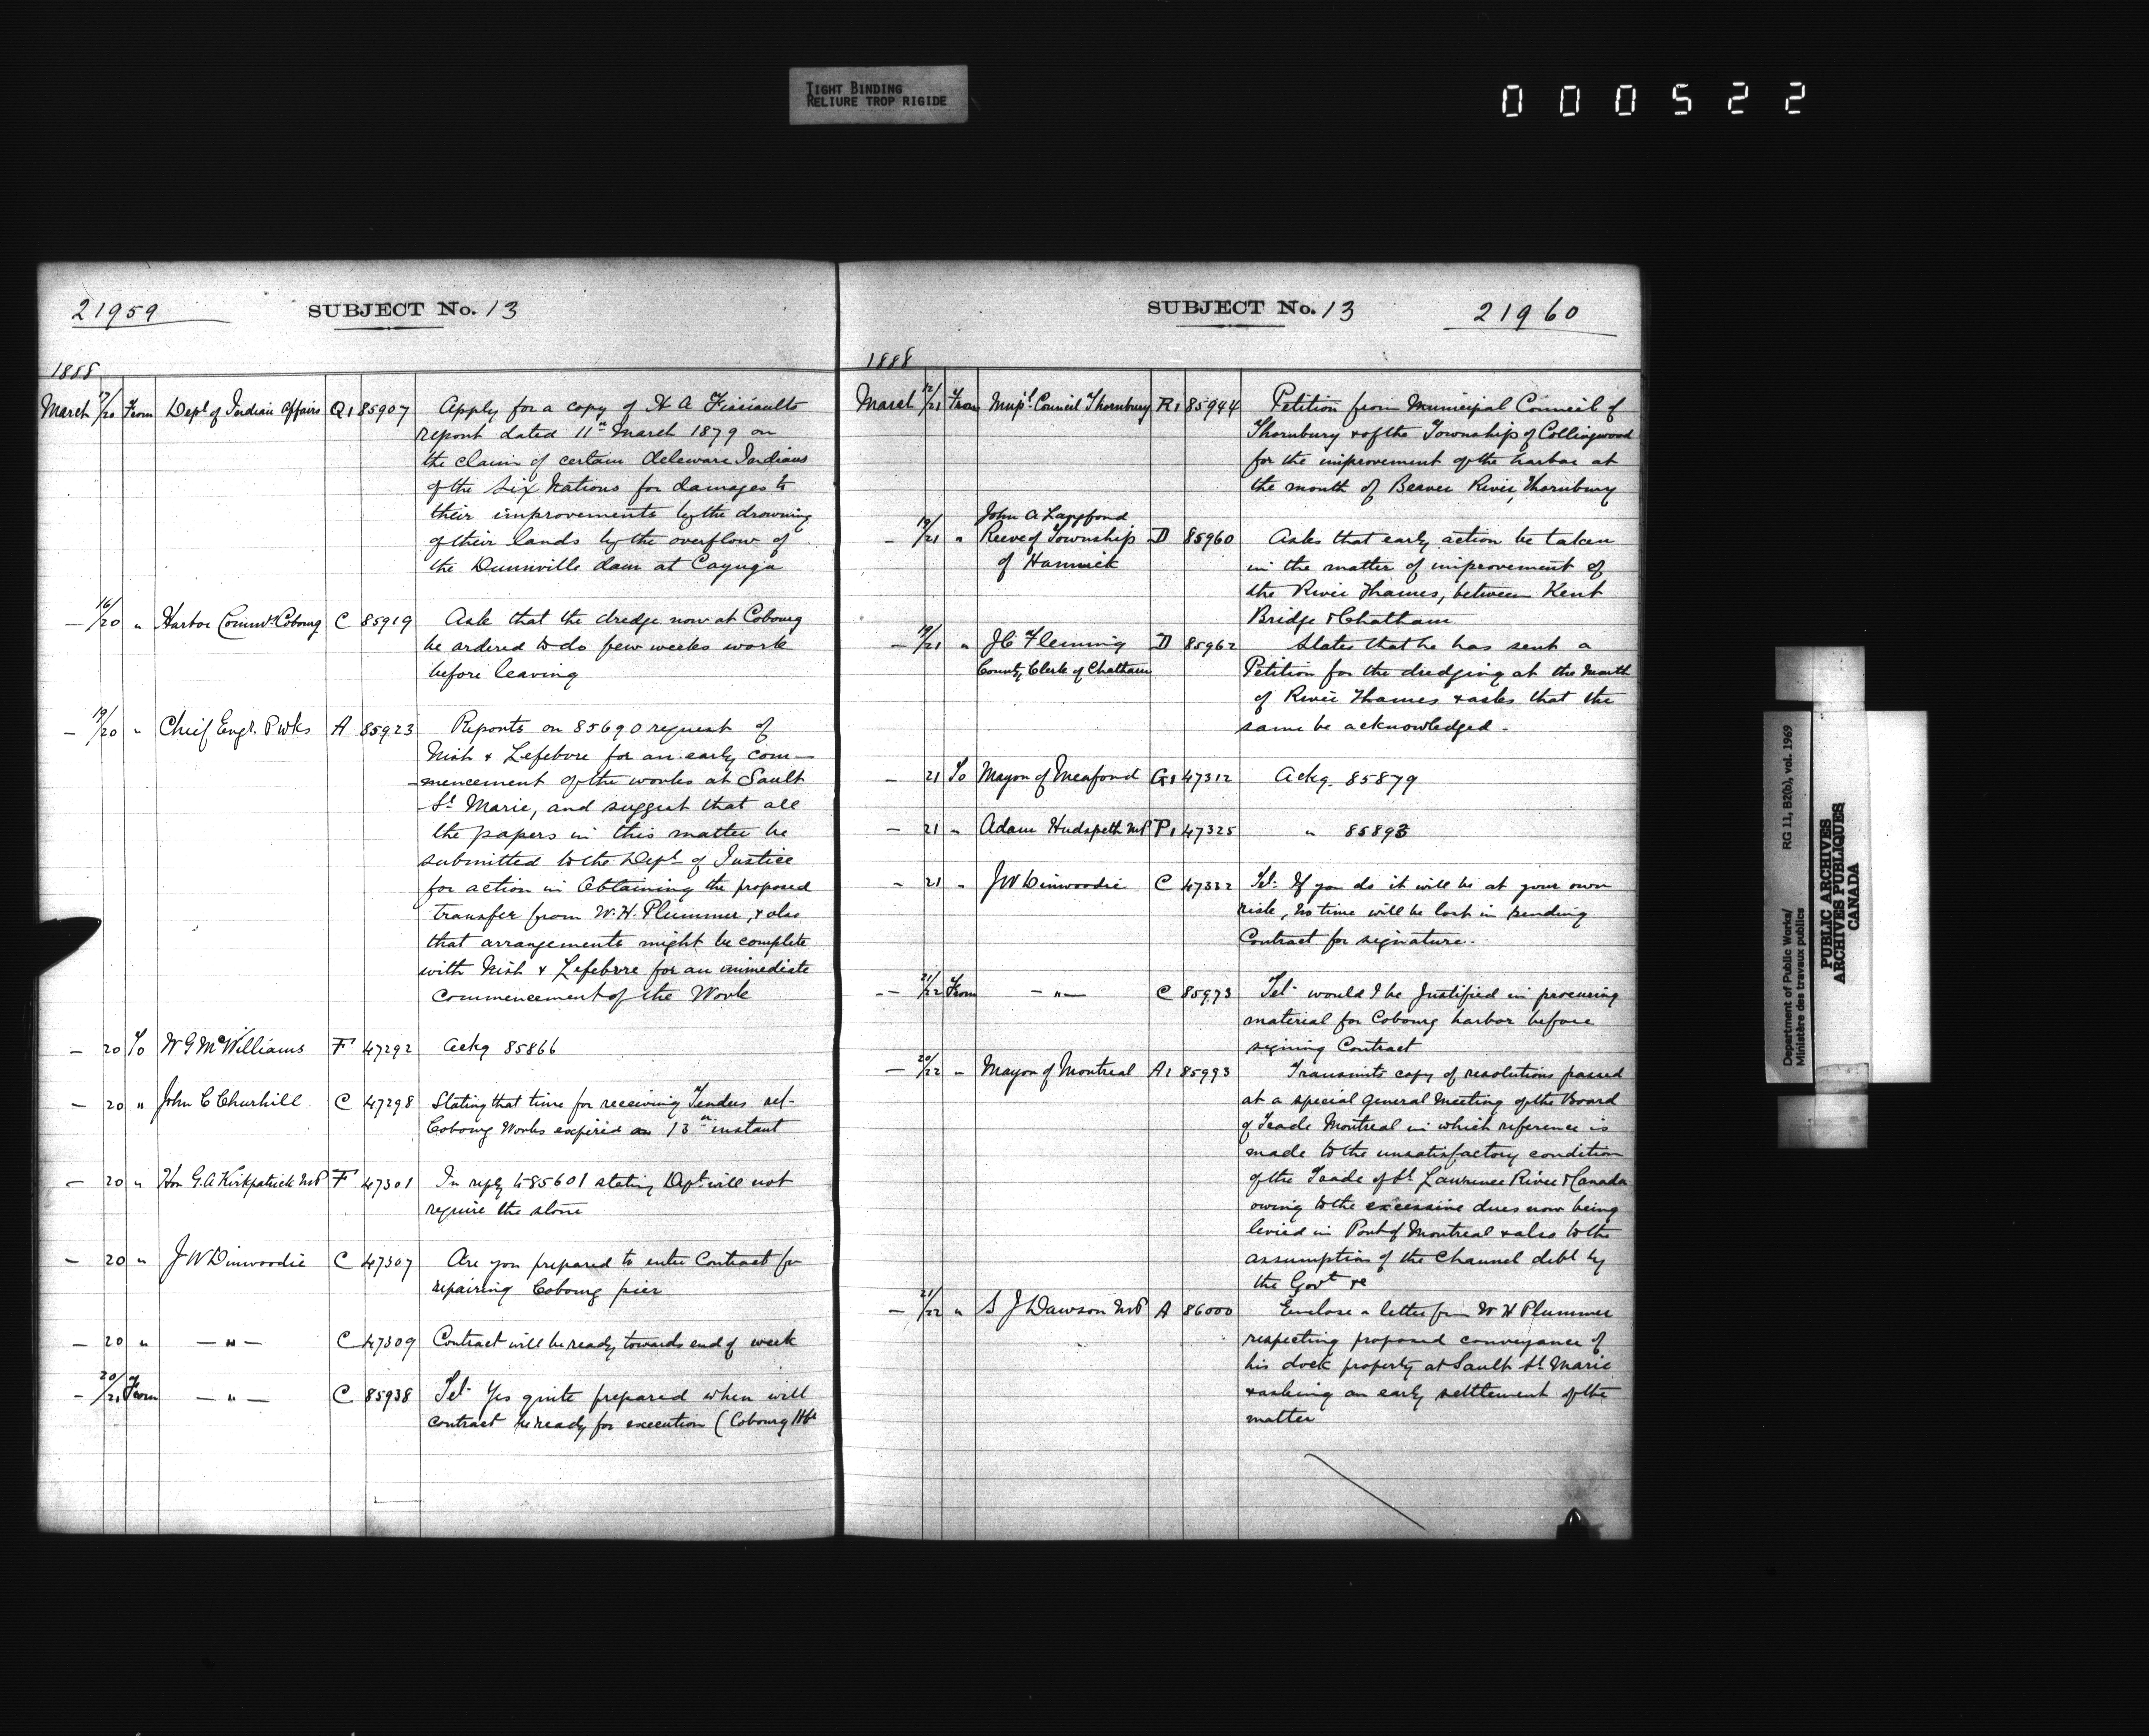 TIGHT BINDING
RELIURE TROP RIGIDE
000522
21959
SUBJECT No. 13
1888
March 17/20 From Dept of Indian Affairs Q1 85907 Apply for a copy of H A
report dated 11th March 1879 on
the claim of certain Deleware Indians
of the Six Nations for damages to
their improvements by the drowning
of their lands by the overflow of
the Dunnville dam at Cayuga
— 16/20 " Harbor Commrs Cobourg C 85919 Ask that the dredge now at Cobourg
be ordered to do few weeks work
before leaving
— 19/20 " Chief Engr. P Wks A 85923 Reports on 85690 request of
Nish & Lefebvre for an early com—
—mencement of the works at Sault
St Marie, and suggest that all
the papers in this matter be
submitted to the Dept of Justice
for action in Obtaining the proposed
transfer from W. H. Plummer, & also
that arrangements might be complete
with Nish & Lefebvre for an immediate
commencement of the Work
— 20 To W G McWilliams F 47292 Ackg 85866
— 20 " John C Churhill C 47298 Stating that time for receiving Tenders rel-
Cobourg Works expired on 13th instant
— 20 " Hon G. A Kirkpatrick MP F 47301 In reply to 85601 stating Dept will not
require the stone
— 20 " J W Dinwoodie C 47307 Are you prepared to enter Contract for
repairing Cobourg pier
— 20 " — " — C 47309 Contract will be ready towards end of week
— 20/21 From — " — C 85938 Tel- Yes quite prepared when will
contract be ready for execution (Cobourg Hbr
SUBJECT No. 13
21960
1888
March 12/21 From Mupl. Council Thornbury R1 85944 Petition from Municipal Council of
Thornbury & of the Township of Collingwood
for the improvement of the harbor at
the mouth of Beaver River, Thornbury
John A Langford
— 19/21 " Reeve of Township D 85960 Asks that early action be taken
of Harwick in the matter of improvement of
the River Thames, between Kent
Bridge & Chatham.
— 19/21 " J C Fleming D 85962 States that he has sent a
County Clerk of Chatham Petition for the dredging at the Mouth
of River Thames & asks that the
same be acknowledged.
— 21 To Mayor of Meaford G1 47312 Ackg. 85879
— 21 " Adam Hudspeth MP P1 47325 " 85893
— 21 " J W Dinwoodie C 47332 Tel- If you do it will be at your own
risk, no time will be lost in sending
Contract for signature.
— 21/22 From — " — C 85973 Tel- would I be Justified in procuring
material for Cobourg harbor before
signing Contract
— 20/22 " Mayor of Montreal A1 85993 Transmits copy of resolutions passed
at a special general Meeting of the Board
of Trade Montreal in which reference is
made to the unsatisfactory condition
of the Trade of St. Lawrence River & Canada
owing to the excessive dues now being
levied in Port of Montreal & also to the
assumption of the Channel debt by
the Govt &c
— 21/22 " S J Dawson MP A 86000 Enclose a letter from W H Plummer
respecting proposed conveyance of
his dock property at Sault St Marie
& asking an early settlement of the
matter
Department of Public Works/ RG 11, B2(b), vol. 1969
Ministère des travaux publics
PUBLIC ARCHIVES
ARCHIVES PUBLIQUES
CANADA